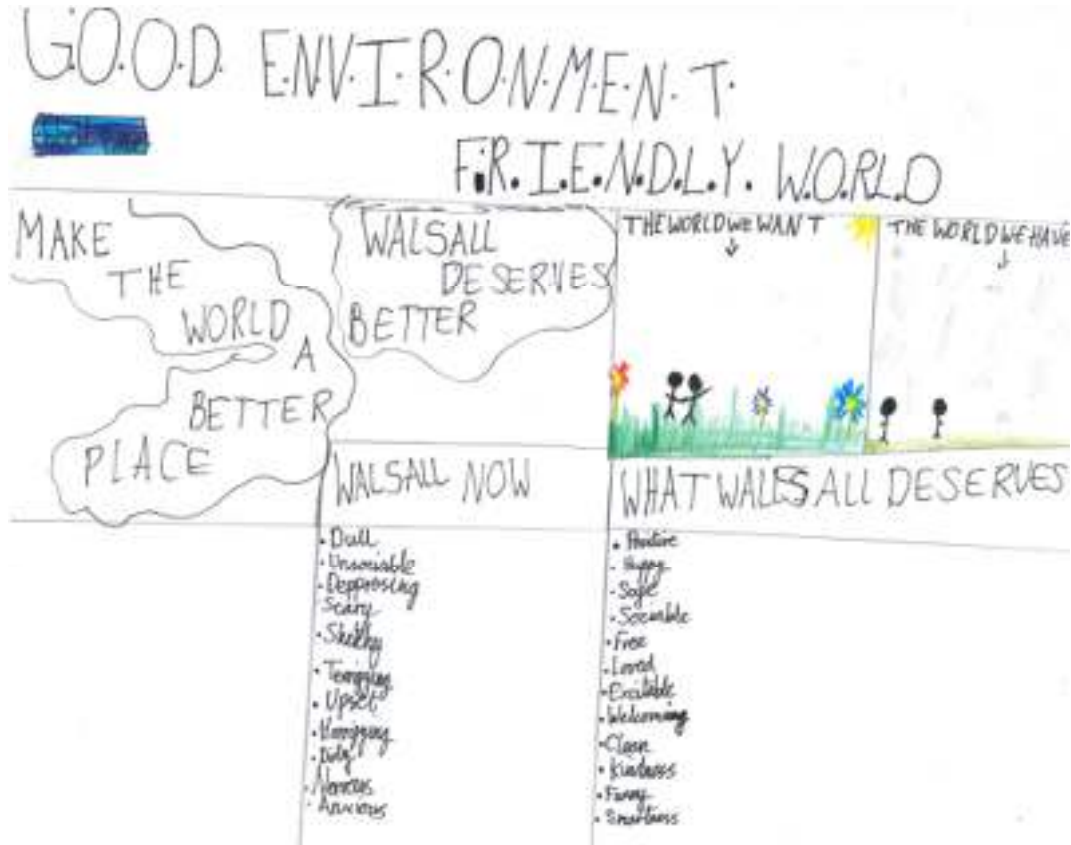 G.O.O.D. E.N.V.I.R.O.N.M.E.N.T.
F.R.I.E.N.D.L.Y. W.O.R.L.D
MAKE
THE
WORLD
A
BETTER
PLACE
WALSALL
DESERVES
BETTER
THE WORLD WE WANT
THE WORLD WE HAVE
WALSALL NOW
• Dull
• Unsociable
• Deppressing
Scary
• Sketchy
• Terrifying
• Upset
• Horrifying
• Dirty
• Nervous
• Anxious
WHAT WALSALL DESERVES
• Positive
• Happy
• Safe
• Sociable
• Free
• Loved
• Excitable
• Welcoming
• Clean
• Kindness
• Funny
• Smartness